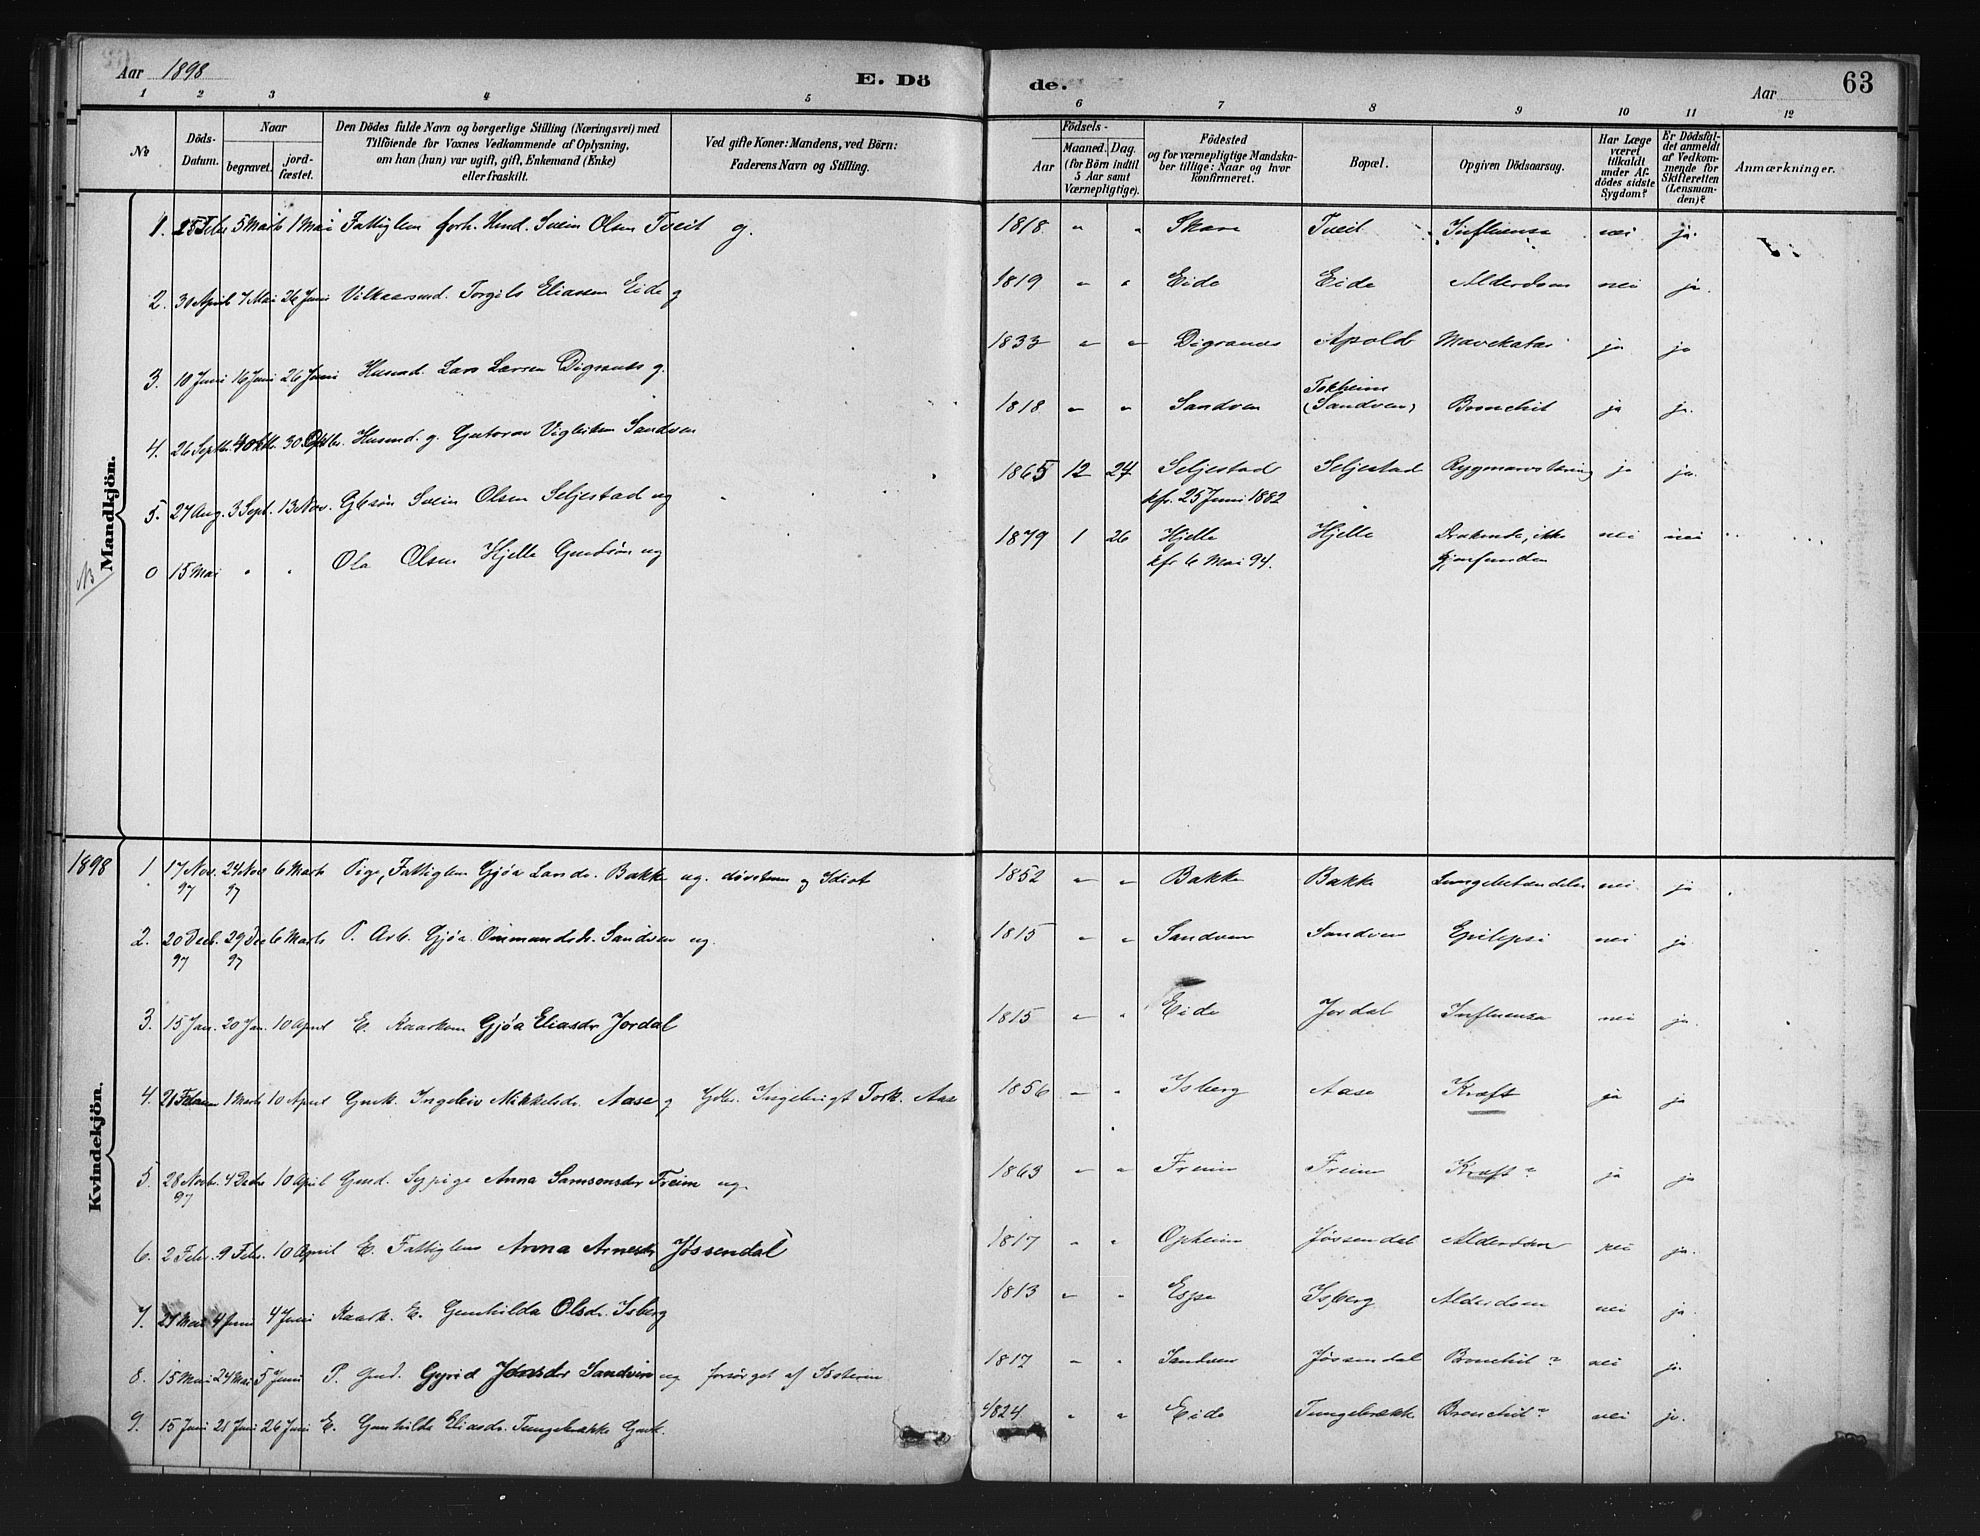 Aar 1898
E. Dö
de.
Aar
63
1 2 3 4 5
6 7 8 9 10 11 12
No
Döds-Datum.
Naar
begravet.
jord-fæstet.
Den Dödes fulde Navn og borgerlige Stilling (Næringsvei) med
Tilföiende for Voxnes Vedkommende af Oplysning,
om han (hun) var ugift, gift, Enkemand (Enke)
eller fraskilt.
Ved gifte Koner: Mandens, ved Börn:
Faderens Navn og Stilling.
Födsels-
Aar
Maaned. Dag.
(for Börn indtil
5 Aar samt
Værnepligtige).
Födested
og for værnepligtige Mandska-
ber tillige: Naar og hvor
konfirmeret.
Bopæl.
Opgiven Dödsaarsag.
Har Læge
været
tilkaldt
under Af-
dödes sidste
Sygdom?
Er Dödsfal-
det anmeldt
af Vedkom-
mende for
Skifteretten
(Lensman-
den)?
Anmærkninger.
Mandkjön.
1. 25 Febr 5 Marts 1 Mai Fattiglem forh. Husd. Svein Olsen Tveit g. 1818 " " Skare Tveit Influensa nei ja
2. 30 April 7 Mai 26 Juni Vilkaarsmd. Torgils Eliassen Eide g 1819 " " Eide Eide Alderdom nei ja.
3. 10 Juni 16 Juni 26 Juni Husmd. Lars Larsen Digranes g. 1833 " " Digranes Apold Mavekatar ja ja
4. 26 Septbr. 4 Oktbr. 30 Oktbr. Husmd. g. Guttorm Vigleiksen Sandven 1818 " " Sandven Tokheim (Sandven) Bronchit ja ja.
5. 27 Aug. 3 Sept. 13 Nov. Gbrsøn Svein Olsen Seljestad ug 1865 12 24 Seljestad Seljestad Rygmarvstæring ja ja.
kfr. 25 Juni 1882
NB
0 15 Mai " " Ola Olsen Hjelle Gmdsøn ug 1879 1 26 Hjelle Hjelle Druknede, ikke nei nei
kfr 6 Mai 94. gjenfunden
Kvindekjön.
1898
1 17 Nov. 97 24 Nov 97 6 Marts Pige, Fattiglem Gjøa Larsdr. Bakke ug. døvstum og Idiot 1852 " " Bakke Bakke Lungebetændelse nei ja
2. 20 Decb. 97 29 Dec 97 6 Marts P. Arb. Gjøa Ommundsdr. Sandven ug. 1815 " " Sandven Sandven Epilepsi nei ja
3. 15 Jan. 20 Jan. 10 April E. Kaarkone Gjøa Eliasdr Jordal 1815 " " Eide Jordal Influensa nei ja.
4. 1 Marts 10 April Gmk. Ingeleiv Mikkelsdr. Aase g Gbr. Ingebrigt Tork. Aase 1856 " " Isberg Aase Kræft ja ja
5. 28 Novb. 97 4 Decbr 10 April Gmd. Sypige Anna Samsonsdr Freim ug. 1863 " " Freim Freim Kræft? ja ja
6. 2 Febr. 9 Febr. 10 April E. Fattiglem Anna Arnesdr Jøssendal 1817 " " Opheim Jøssendal Alderdom nei ja.
7. 27 Mai 4 Juni 4 Juni Kaark. E. Gunhilda Olsdr. Isberg 1813 " " Espe Isberg Alderdom nei ja.
8. 15 Mai 24 Mai 5 Juni P. Gmd. Gyrid Jonsdr Sandven ug forsørget af Søsteren 1817 " " Sandven Jøssendal Bronchit? nei ja.
9. 15 Juni 21 Juni 26 Juni E. Gunhilda Eliasdr. Tungebrække Gmk. 1824 " " Eide Tungebrække Bronchit? nei ja.